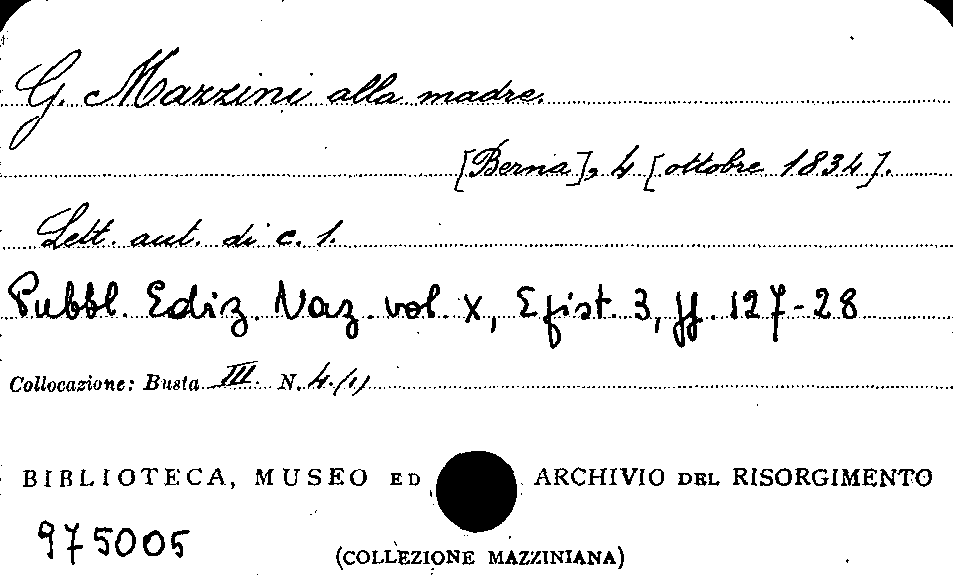 G. Mazzini alla madre.
[Berna], 4 [ottobre 1834].
Lett. aut. di c. 1.
Pubbl. Ediz. Naz. vol. X, Epist. 3, pp. 127-28
Collocazione: Busta III. N. 4.(1)
BIBLIOTECA, MUSEO ED ARCHIVIO DEL RISORGIMENTO
975005
(COLLEZIONE MAZZINIANA)